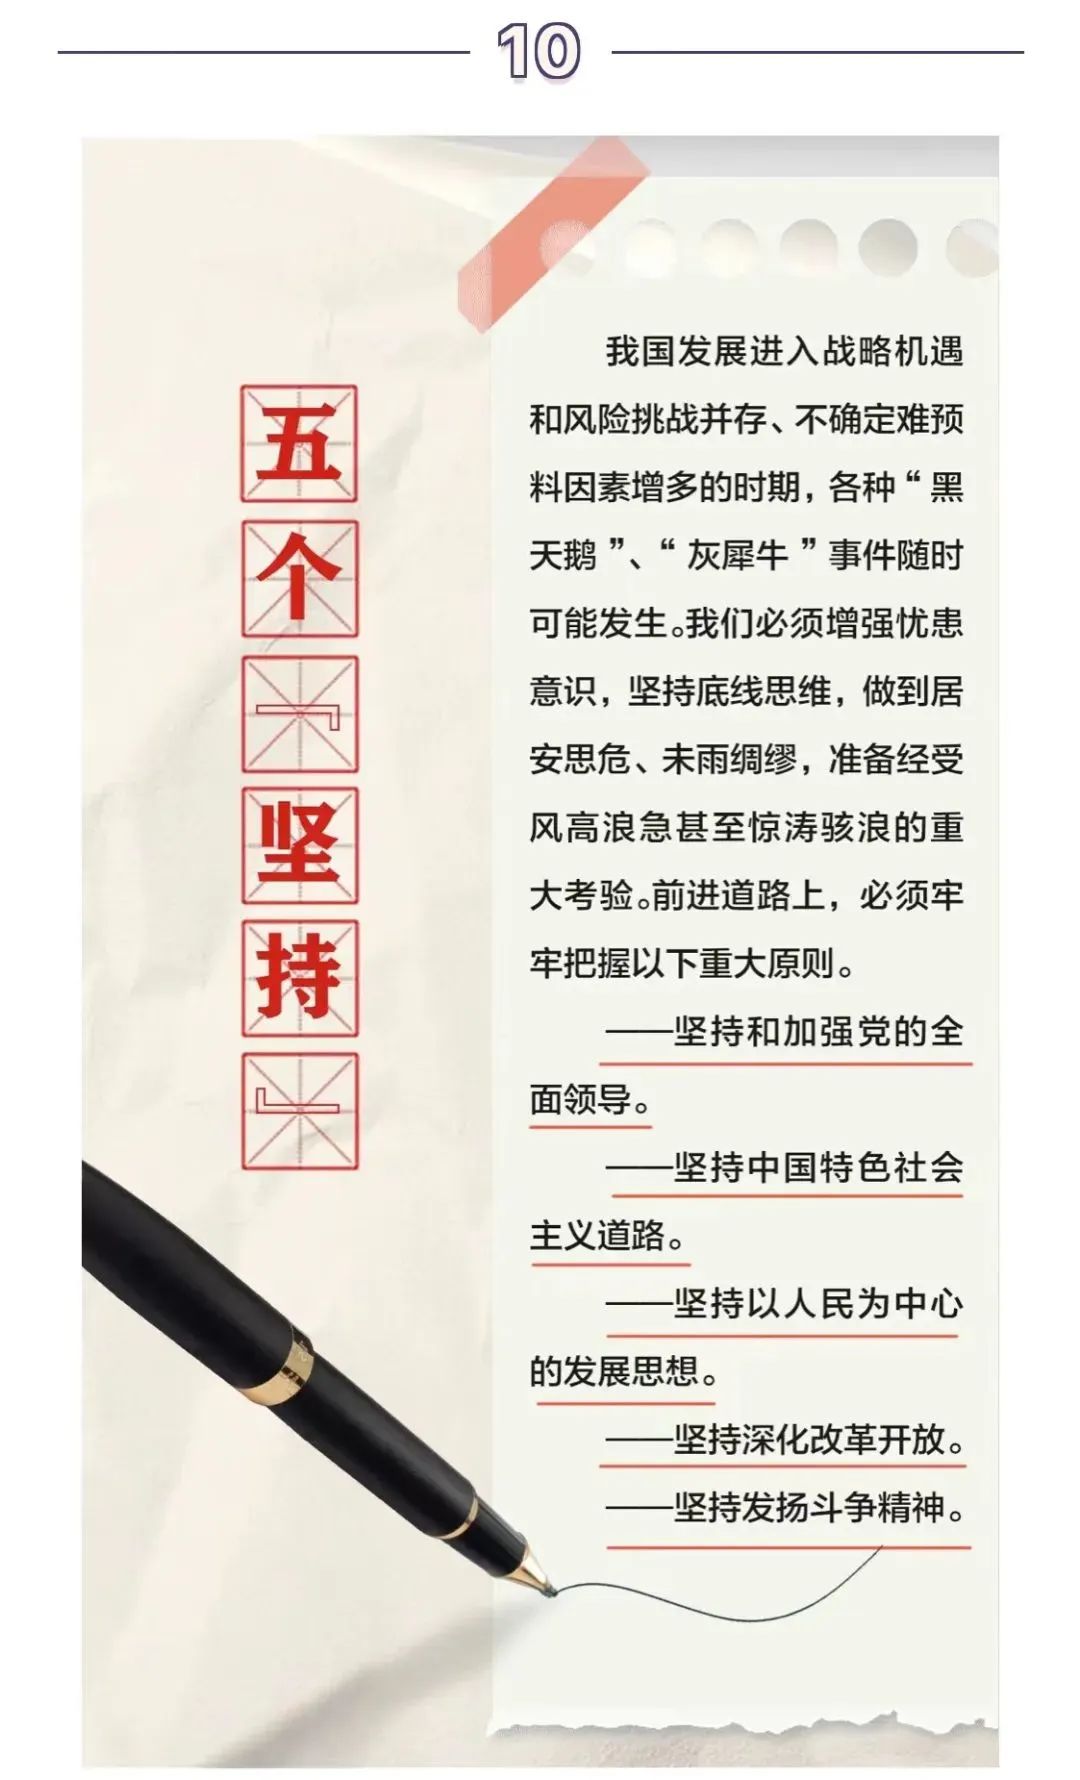 10
五个「坚持」
我国发展进入战略机遇
和风险挑战并存、不确定难预
料因素增多的时期，各种“黑
天鹅”、“灰犀牛”事件随时
可能发生。我们必须增强忧患
意识，坚持底线思维，做到居
安思危、未雨绸缪，准备经受
风高浪急甚至惊涛骇浪的重
大考验。前进道路上，必须牢
牢把握以下重大原则。
——坚持和加强党的全
面领导。
——坚持中国特色社会
主义道路。
——坚持以人民为中心
的发展思想。
——坚持深化改革开放。
——坚持发扬斗争精神。